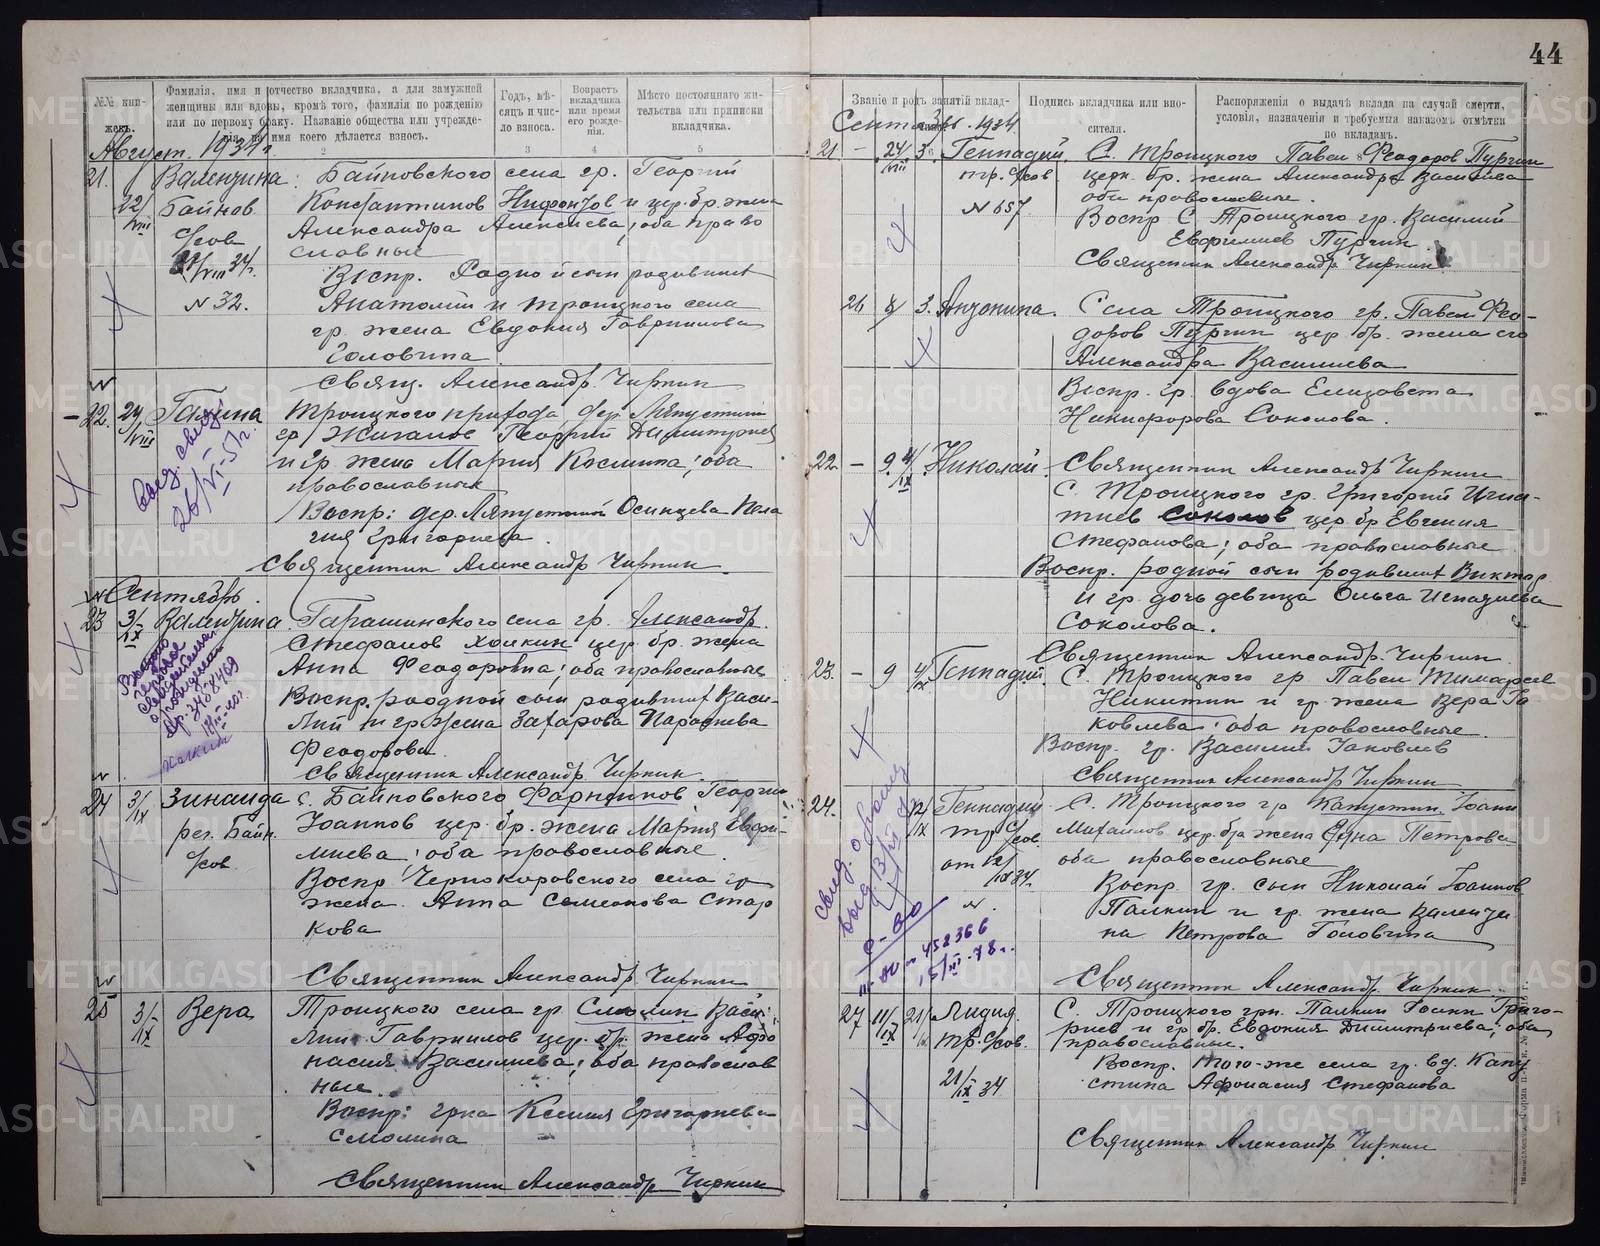 44
№№ кни-
жекъ.
Фамилія, имя и отчество вкладчика, а для замужней
женщины или вдовы, кромѣ того, фамилія по рожденію
или по первому браку. Названіе общества или учрежде-
нія, на имя коего дѣлается взносъ.
Годъ, мѣ-
сяцъ и чис-
ло взноса.
Возрастъ
вкладчика
или время
его рожде-
нія.
Мѣсто постояннаго жи-
тельства или приписки
вкладчика.
2 3 4 5
Август. 1934 г.
21. 22/VIII Валентина. Байновского села гр. Георгий
Байнов. Константинов Нифонтов и цер. бр. жена
с/сов Александра Алексеева; оба право
21/VIII 34 г. славные
Воспр. Родной сын родившит
№ 32. Анатолий и Троицкого села
гр. жена Евдокия Гавриилова
Головина
Свящ. Александр Чиркин
22. 24/VIII Галина Троицкого прихода дер. Ляпустиной
гр. Жиганов Георгий Димитриев
и гр. жена Мария Космина; оба
православных
Воспр: дер. Ляпустиной Осинцева Пела
гия Григориева.
Священник Александр Чиркин.
выд. свид.
26/VI-57 г.
Сентябрь.
23 3/IX Валентина. Гарашинского села гр. Александр
Стефанов Холкин цер. бр. жена
Анна Феодоровна; оба православные
Воспр. родной сын родившит Васи-
лий и гр. жена Захарова Параскева
Феодорова
Священник Александр Чиркин.
24 3/IX Зинаида с. Байновского Фарносов Георгий
рег. Байн. Иоаннов цер. бр. жена Мария Евфи-
с/сов. миева; оба православные
Воспр Чернокоровского села гр
жена. Анна Семенова Стар
кова
Священник Александр Чиркин
25 3/IX Вера Троицкого села гр. Смолин Васи
лий Гаврилов цер. бр. жена Афо
насия Васильева; оба православ
ные.
Воспр: гр-ка Ксения Григориева
Смолина
Священник Александр Чиркин
Званіе и родъ занятій вклад-
чика.
Подпись вкладчика или вно-
сителя.
Распоряженія о выдачѣ вклада на случай смерти,
условія, назначенія и требуемыя наказомъ отмѣтки
по вкладамъ.
Сентябрь. 1934
21 – 24/VIII 3 Геннадий. С. Троицкого Павел Феодоров Пургин
тр. с/сов. церк. бр. жена Александра Васильева
оба православные.
№ 657 Воспр С. Троицкого гр. Василий
Евфимиев Пургин.
Священник Александр Чиркин
26 8/ 3. Антонина. С села Троицкого гр. Павел Фео-
доров Пургин цер. бр. жена его
Александра Васильева
Воспр. гр. вдова Елизавета
Никифорова Соколова.
Священник Александр Чиркин
22. – 9. 4/IX Николай. С. Троицкого гр. Григорий Игна-
тиев Соколов цер. бр Евгения
Стефанова; оба православные
Воспр. родной сын родившит Виктор
и гр. дочь девица Ольга Игнатиева
Соколова.
Священник Александр Чиркин
23. – 9 4/IX Геннадий С. Троицкого гр. Павел Тимофеев
Никитин и гр. жена Вера Яковлева
ковлева; оба православные.
Воспр. гр. Василий Яковлев
Священник Александр Чиркин
24. 12/IX Геннадий С. Троицкого гр Капустин Иоанн
тр с/сов. Михаилов цер. бр жена Петрова
от 12/IX 34. оба православные
Воспр. гр. сын Николай Иоаннов
Палкин и гр. жена Валенти
на Петрова Головина
Священник Александр Чиркин.
27 11/IX 21/ Лидия. С. Троицкого грн. Палкин Иоанн Григо-
тр. с/сов. риев и гр. бр. Евдокия Димитриева; оба
православные.
21/IX 34 Воспр. того-же села гр. вд. Капу
стина Афонасия Стефанова
Священник Александр Чиркин